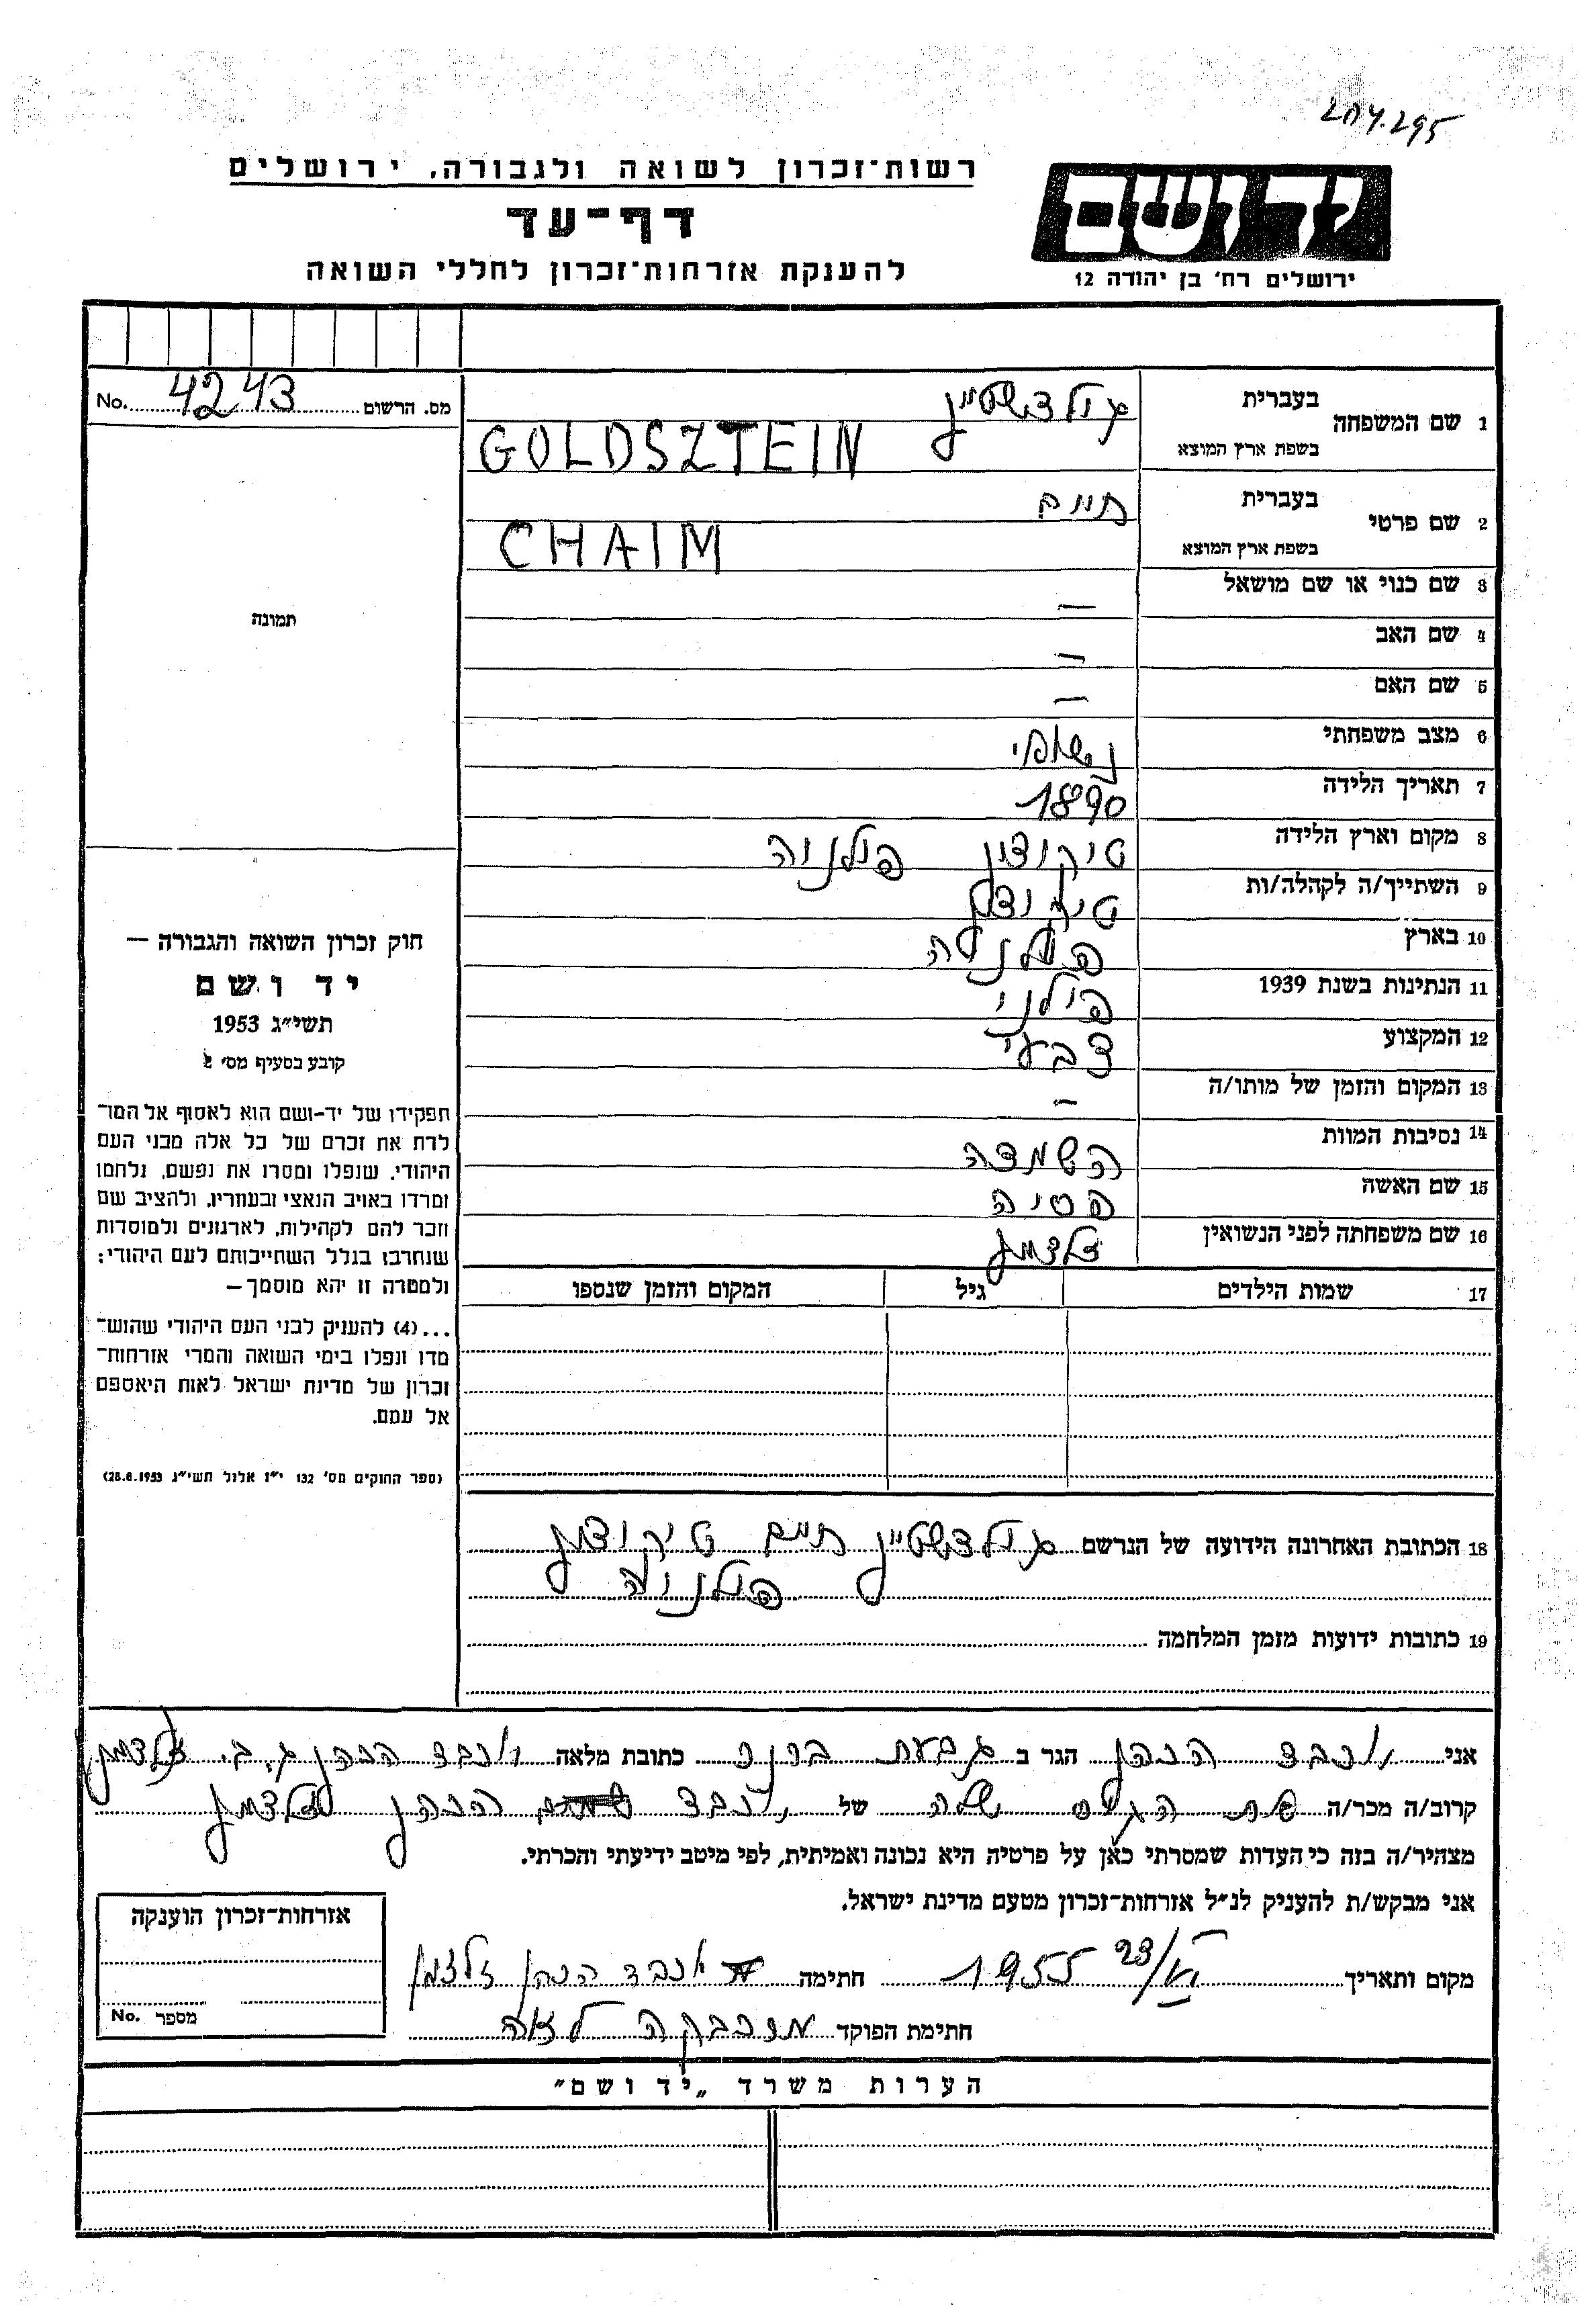 רשות־זכרון לשואה ולגבורה, ירושלים
דף־עד
להענקת אזרחות־זכרון לחללי השואה
יד ושם
ירושלים רח' בן יהודה 12
No. 4243 מס. הרשום
1 שם המשפחה בעברית גולדשטיין
בשפת ארץ המוצא GOLDSZTEIN
2 שם פרטי בעברית חיים
בשפת ארץ המוצא CHAIM
3 שם כנוי או שם מושאל —
4 שם האב —
5 שם האם —
6 מצב משפחתי נשוי
7 תאריך הלידה 1890
8 מקום וארץ הלידה טיקוצין פולניה
9 השתייך/ה לקהלה/ות טיקוצין
10 בארץ פולניה
11 הנתינות בשנת 1939 פולני
12 המקצוע צבעי
13 המקום והזמן של מותו/ה —
14 נסיבות המוות השמדה
15 שם האשה חסיה
16 שם משפחתה לפני הנשואין זלצמן
17 שמות הילדים גיל המקום והזמן שנספו
18 הכתובת האחרונה הידועה של הנרשם גולדשטיין חיים טיקוצין
פולניה
19 כתובות ידועות מזמן המלחמה
תמונה
חוק זכרון השואה והגבורה —
יד ושם
תשי״ג 1953
קובע בסעיף מס' 2
תפקידו של יד-ושם הוא לאסוף אל המו־
לדת את זכרם של כל אלה מבני העם
היהודי, שנפלו ומסרו את נפשם, נלחמו
ומרדו באויב הנאצי ובעוזריו, ולהציב שם
וזכר להם לקהילות, לארגונים ולמוסדות
שנחרבו בגלל השתייכותם לעם היהודי;
ולמטרה זו יהא מוסמך —
...(4) להעניק לבני העם היהודי שהוש־
מדו ונפלו בימי השואה והמרי אזרחות־
זכרון של מדינת ישראל לאות היאספם
אל עמם.
(ספר החוקים מס' 132 י״ז אלול תשי״ג 28.8.1953)
אני יוכבד הכהן הגר ב גבעת ברנר כתובת מלאה יוכבד הכהן ג. ב. זלצמן
קרוב/ה מכר/ה של יוכבד הכהן זלצמן
מצהיר/ה בזה כי העדות שמסרתי כאן על פרטיה היא נכונה ואמיתית, לפי מיטב ידיעתי והכרתי.
אני מבקש/ת להעניק לנ״ל אזרחות־זכרון מטעם מדינת ישראל.
מקום ותאריך 23/VI 1955 חתימה יוכבד הכהן זלצמן
חתימת הפוקד לאה
אזרחות־זכרון הוענקה
No. מספר
הערות משרד „יד ושם״